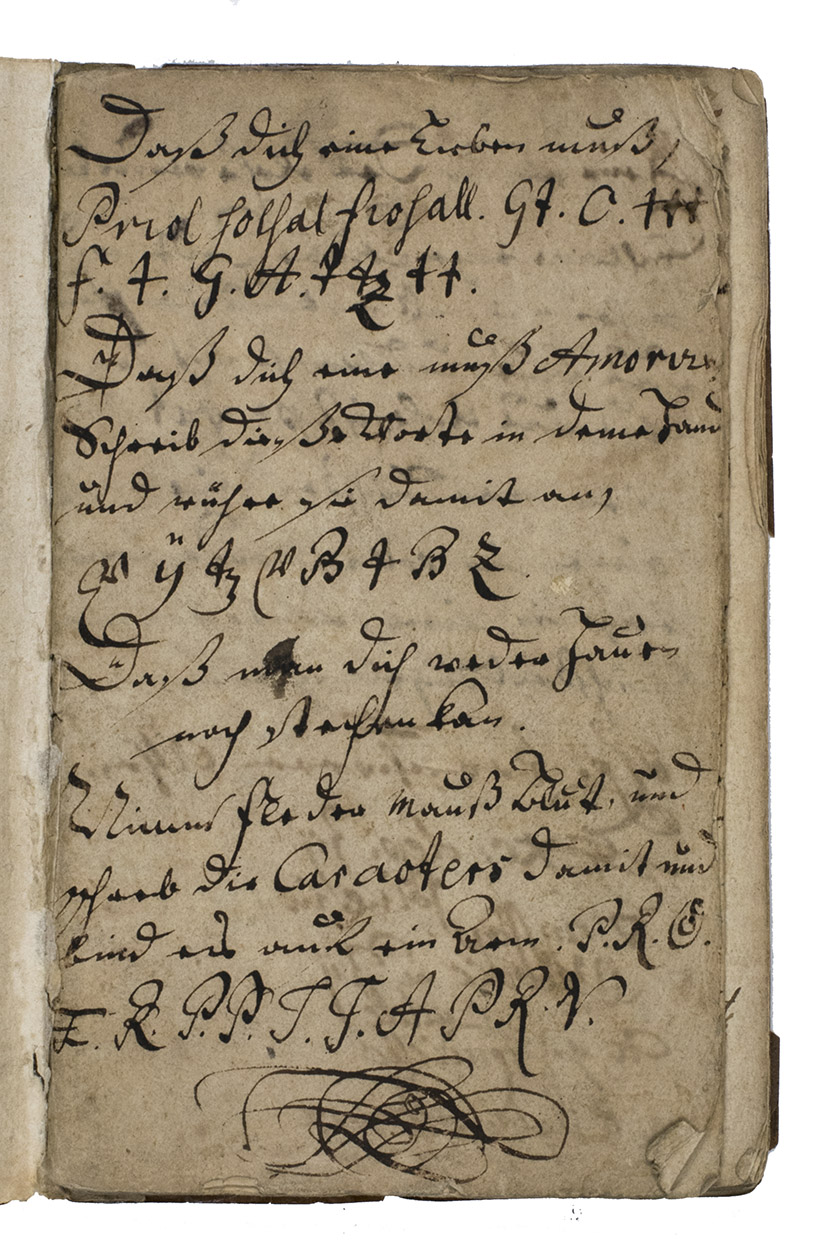 Daß dich eine Lieben muß,
Prid holhal frohall. G‡. C. ‡‡‡
f. ‡. G. A. ‡ ‡ ‡ ‡.
Daß dich eine muß
Schreib dieße Worte in deine Hand
und rühre sie damit an,
ÿ B ‡ B Z
Daß man dich weder Hauen
noch stechen kan.
Nimm fleder Mauß Blut, und
schreb die Caracters damit und
bind es auf ein Arm. P. R. G.
E. R. P. P. I. J. A P R. V.